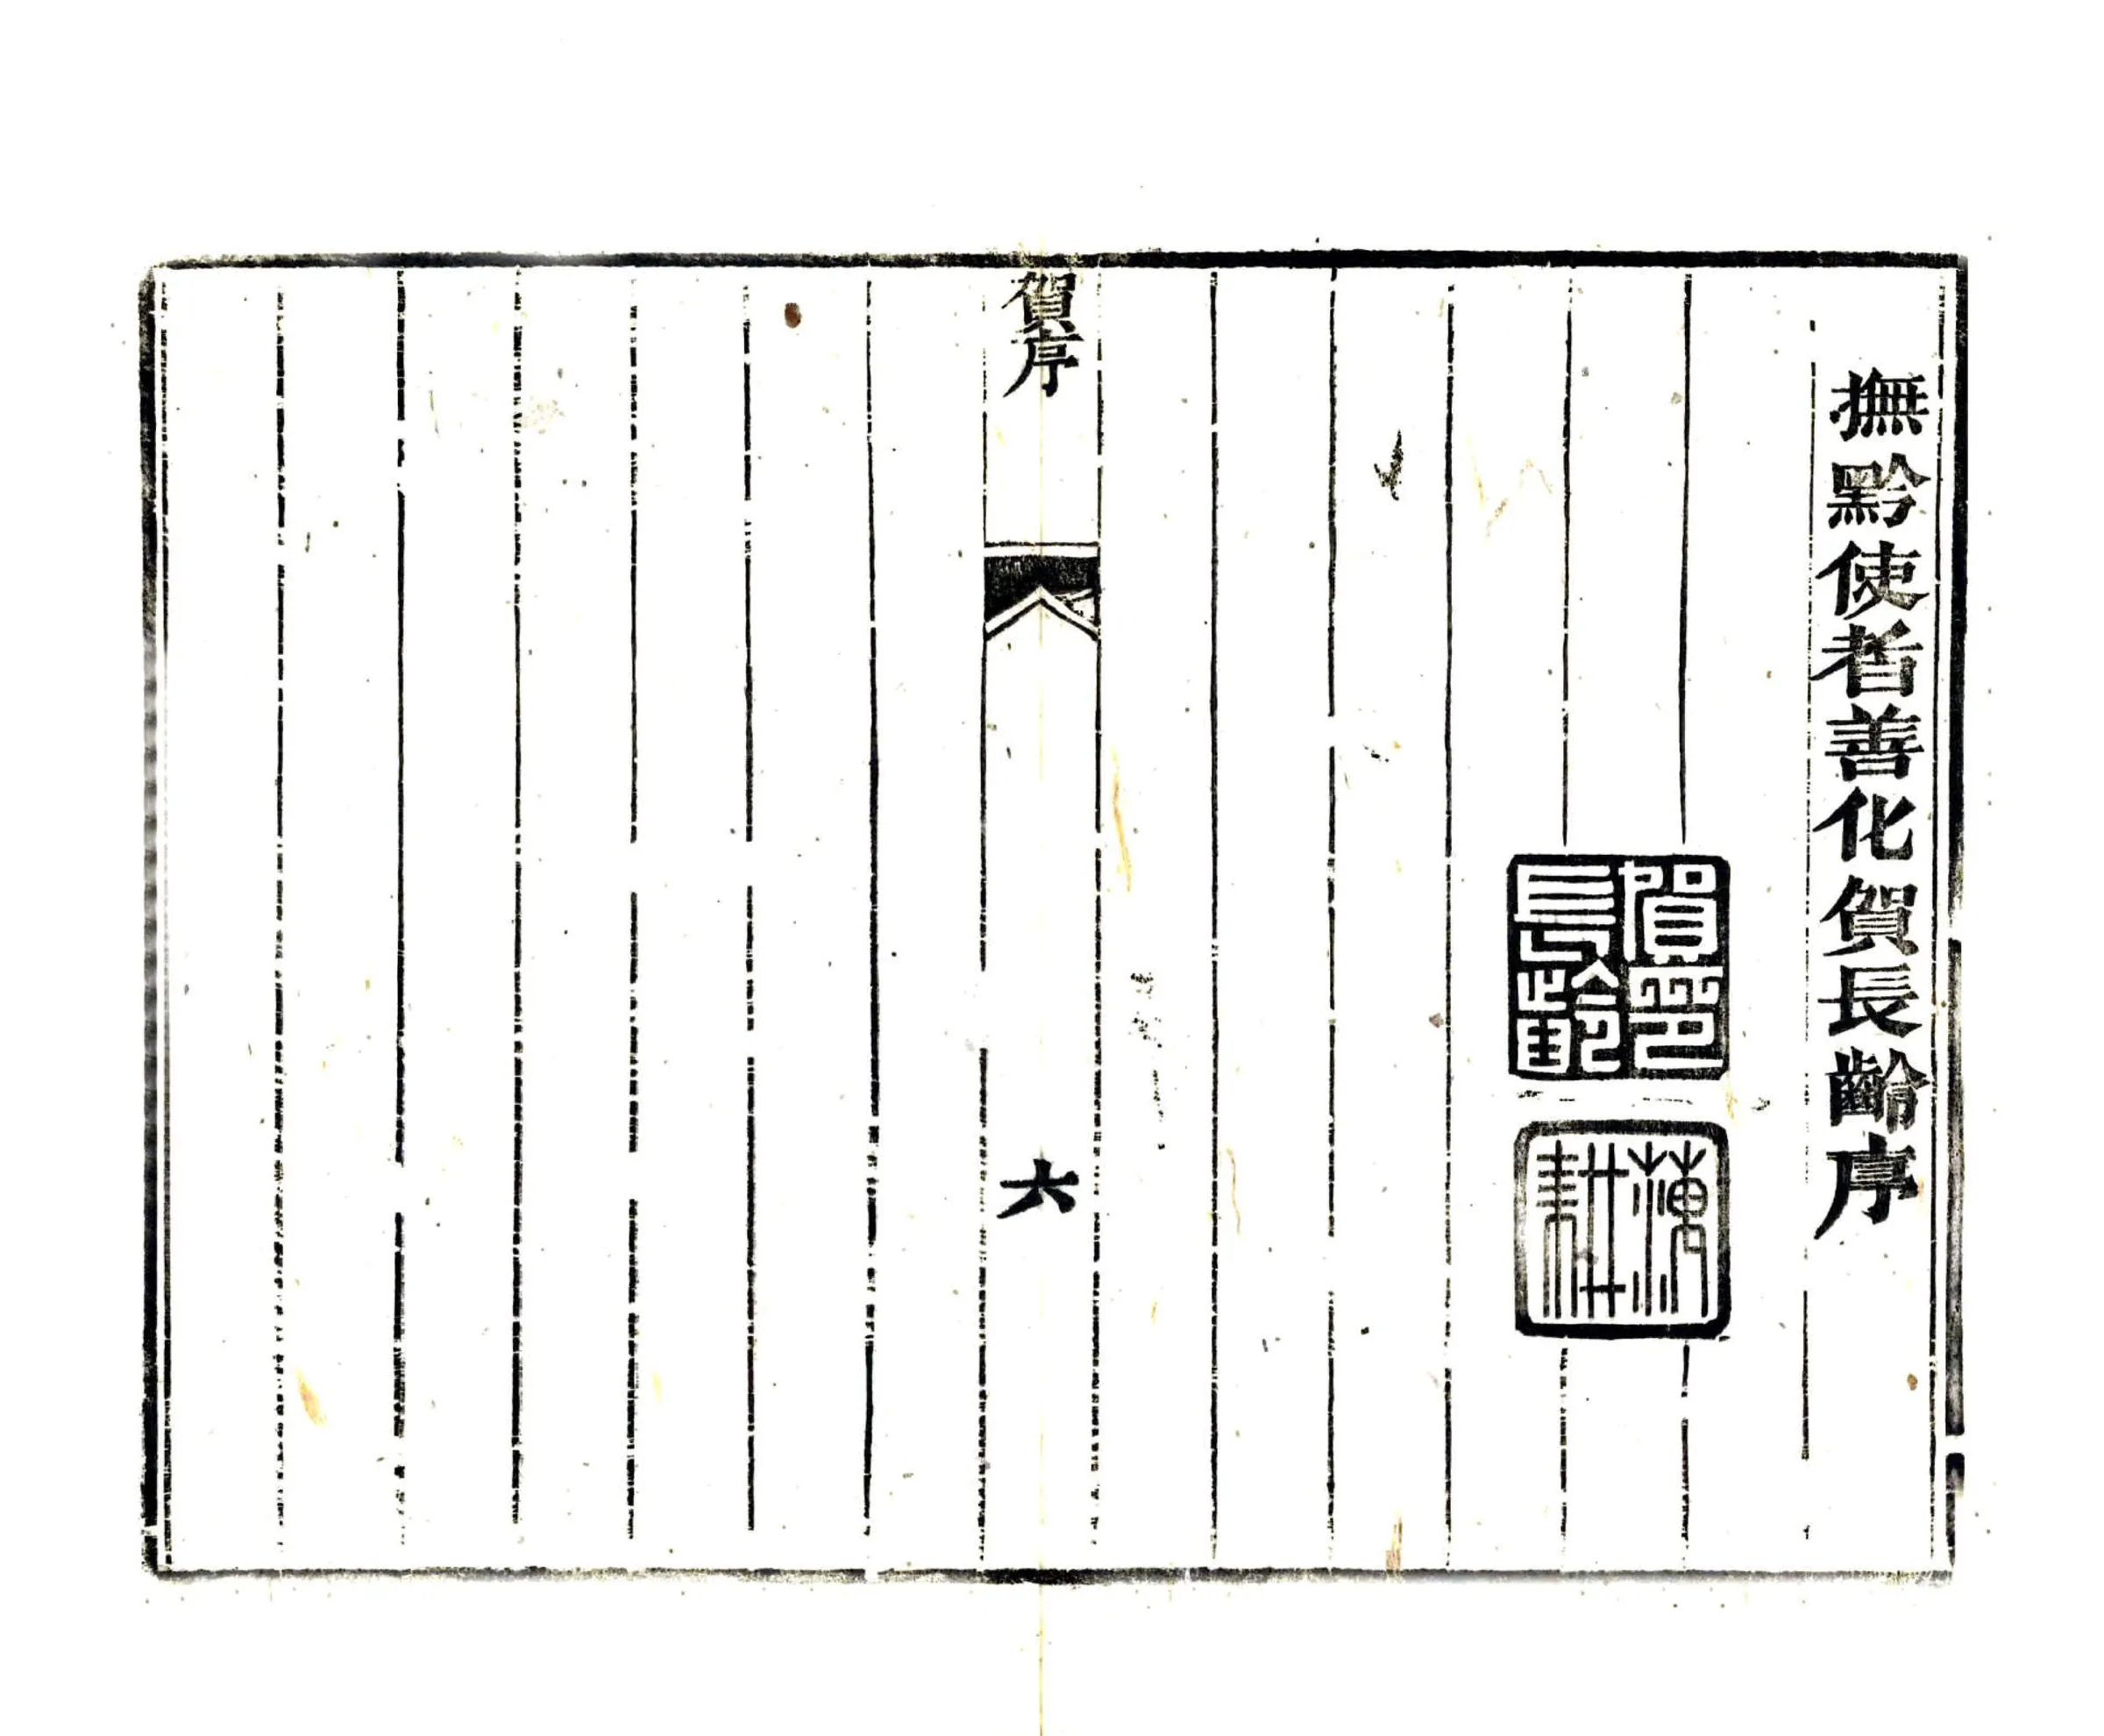 撫黔使者善化賀長齡序
賀印長齡
蕅耕
賀序
六